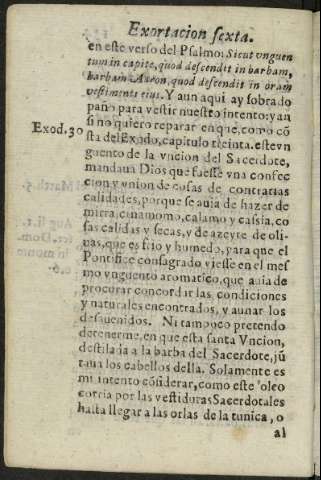 Exortacion sexta.
en este verso del Psalmo: Sicut vnguen
tum in capite, quod descendit in barbam,
barbam Aaron, quod descendit in oram
vestimenti eius. Y aun aqui ay sobrado
paño para vestir nuestro intento: y aun
si no quiero reparar en que, como cõ
Exod. 30
sta del Exodo, capitulo treinta. este vn
guento de la vncion del Sacerdote,
mandaua Dios que fuesse vna confec
cion y vnion de cosas de contrarias
calidades, porque se auia de hazer de
mirra, cinamomo, calamo y cassia, co
sas calidas y secas, y de azeyte de oli-
uas, que es frio y humedo, para que el
Pontifice consagrado viesse en el mes
mo vnguento aromatico, que auia de
procurar concordar las condiciones
y naturales encontrados, y aunar los
desauenidos. Ni tampoco pretendo
detenerme, en que esta santa Vncion,
destilaua a la barba del Sacerdote, jũ
taua los cabellos della. Solamente es
mi intento cõsiderar, como este oleo
corria por las vestiduras Sacerdotales
hasta llegar a las orlas de la tunica, o
al